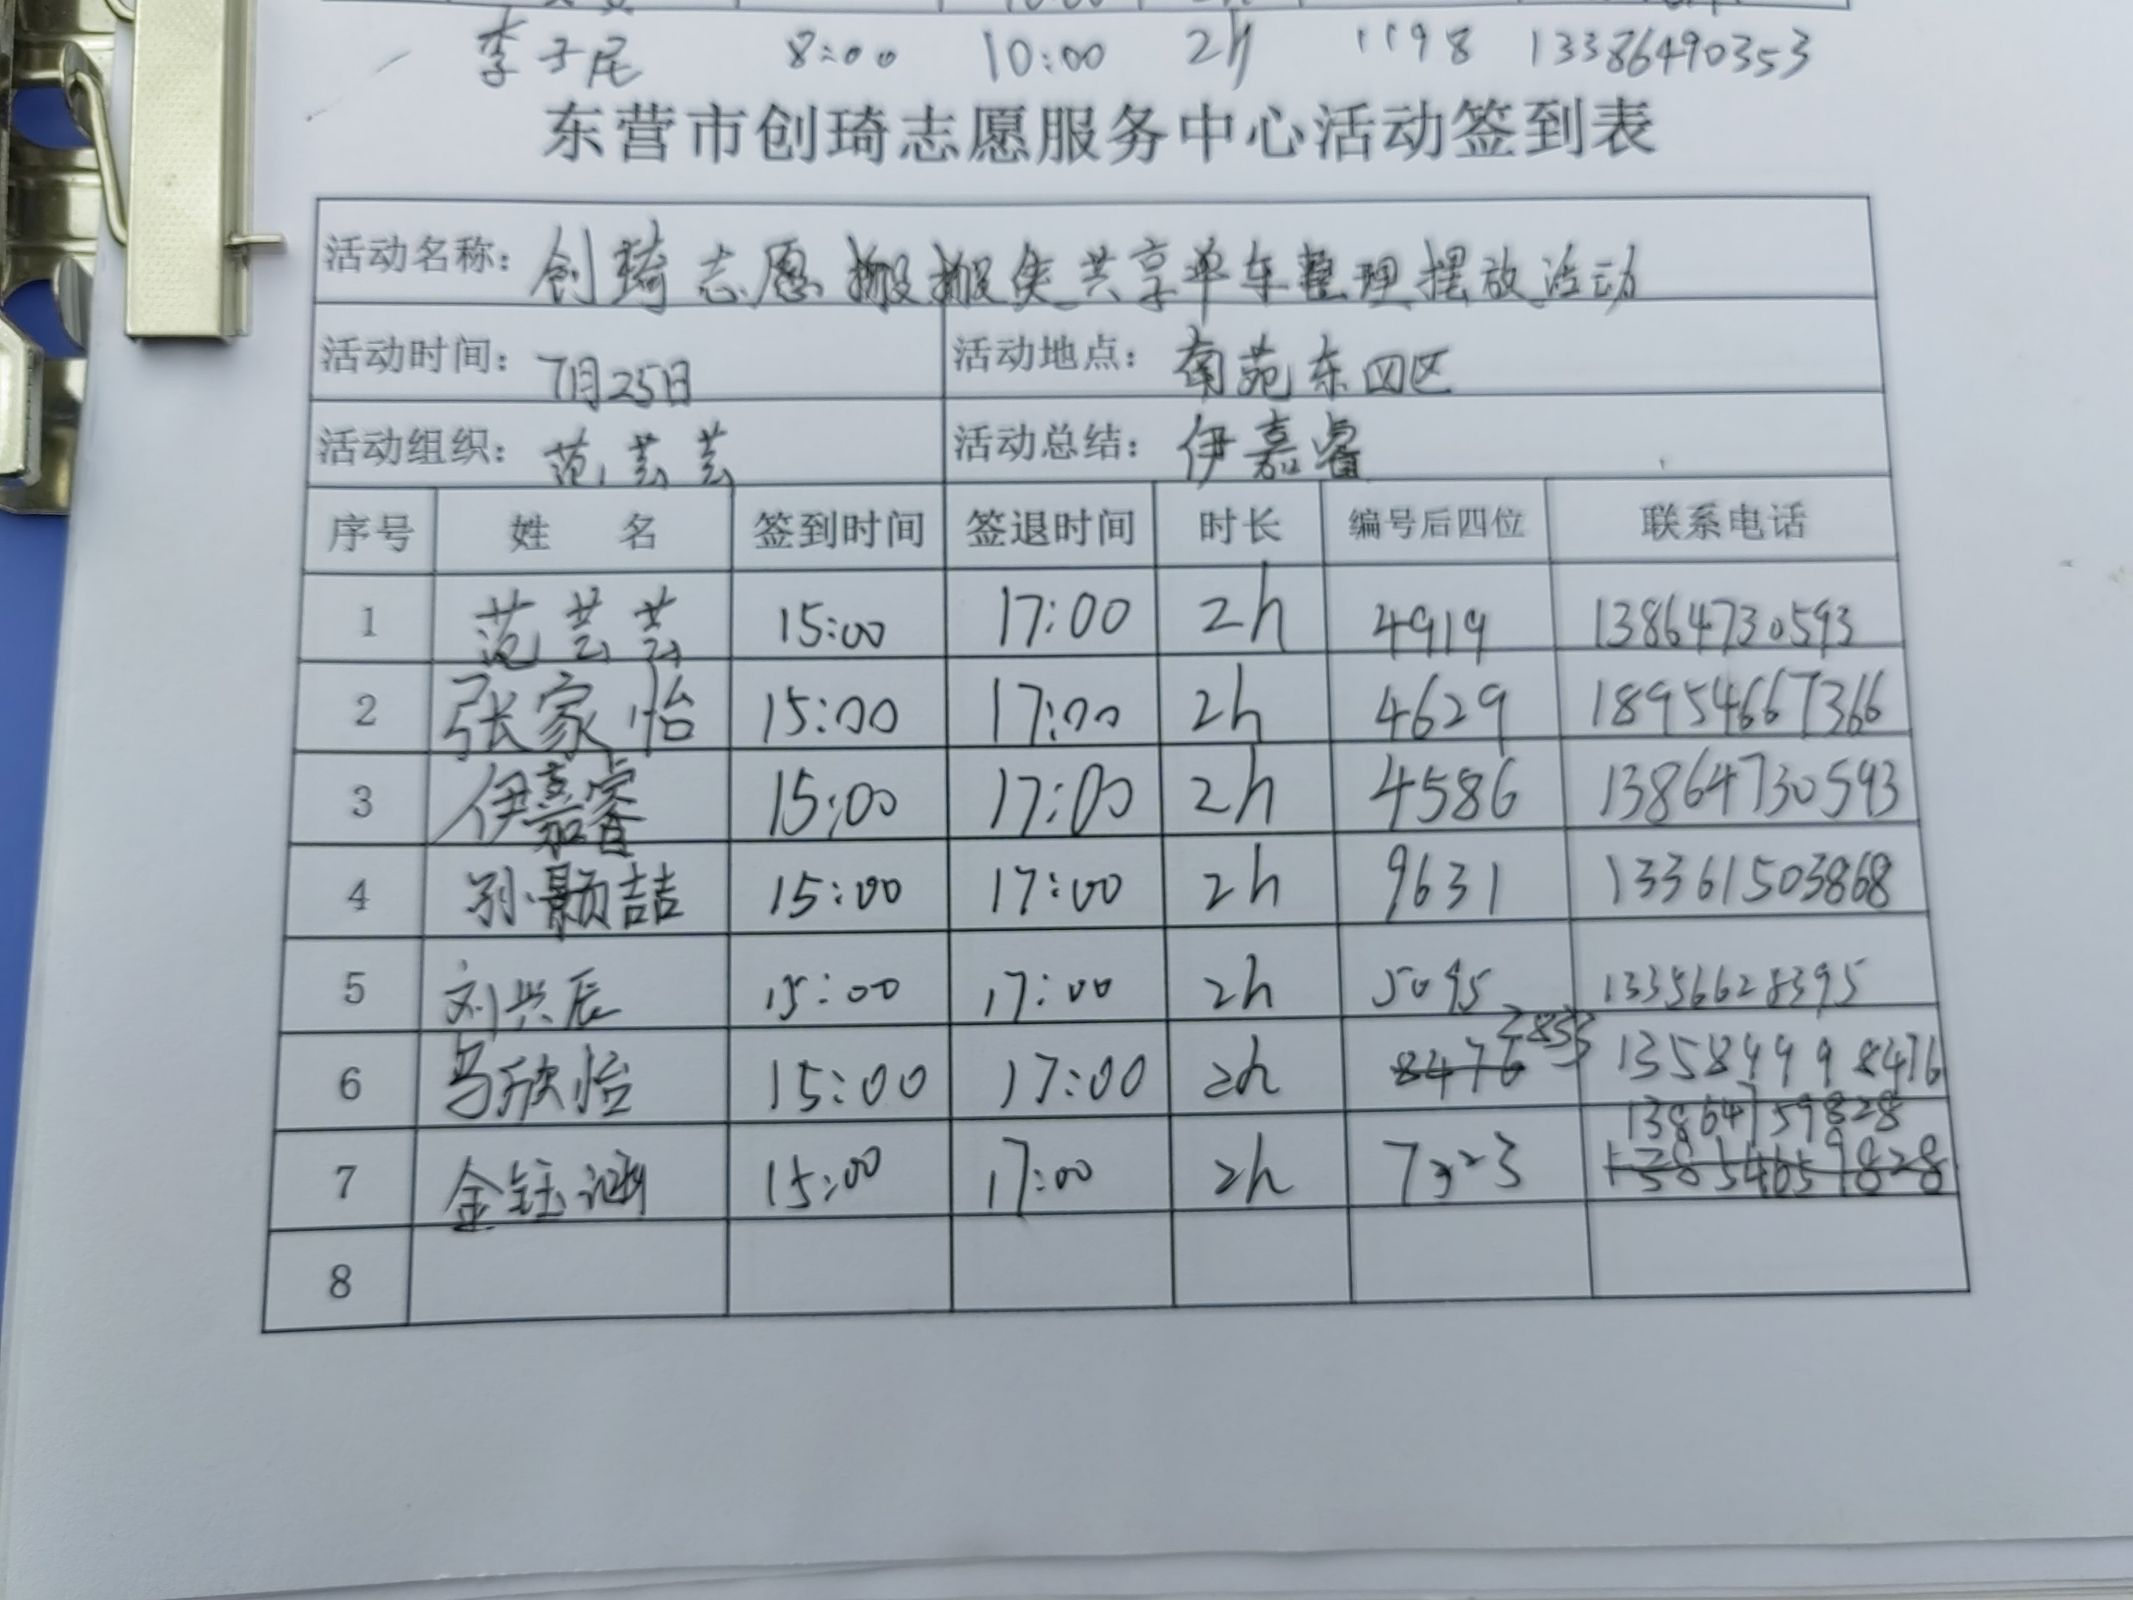 李子尾 8:00 10:00 2h 1198 13386490353
东营市创琦志愿服务中心活动签到表
活动名称: 创琦志愿搬搬侠共享单车整理摆放活动
活动时间: 7月25日 活动地点: 南苑东四区
活动组织: 范芸芸 活动总结: 伊嘉睿
序号 姓 名 签到时间 签退时间 时长 编号后四位 联系电话
1 范芸芸 15:00 17:00 2h 4919 13864730593
2 张家怡 15:00 17:00 2h 4629 18954667366
3 伊嘉睿 15:00 17:00 2h 4586 13864730593
4 孙颢喆 15:00 17:00 2h 9631 13361503868
5 刘兴辰 15:00 17:00 2h 5095 13356628395
6 马欣怡 15:00 17:00 2h 8476 2853 13589998476
13864759828
7 金钰涵 15:00 17:00 2h
8